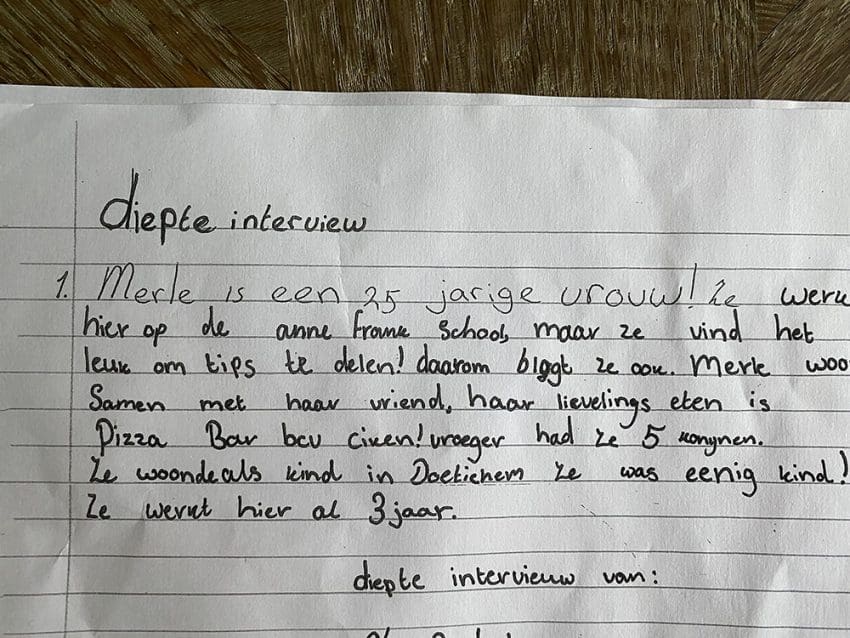 diepte interview
1. Merle is een 25 jarige vrouw! Ze weru
hier op de anne Frank School, maar ze vind het
leuk om tips te delen! daarom blogt ze ook. Merle woo
Samen met haar vriend, haar lievelings eten is
Pizza Bar bcu ciken! vroeger had ze 5 konynen.
Ze woonde als kind in Doetichem ze was eenig kind!
Ze werkt hier al 3 jaar.
diepte intervieuw van: